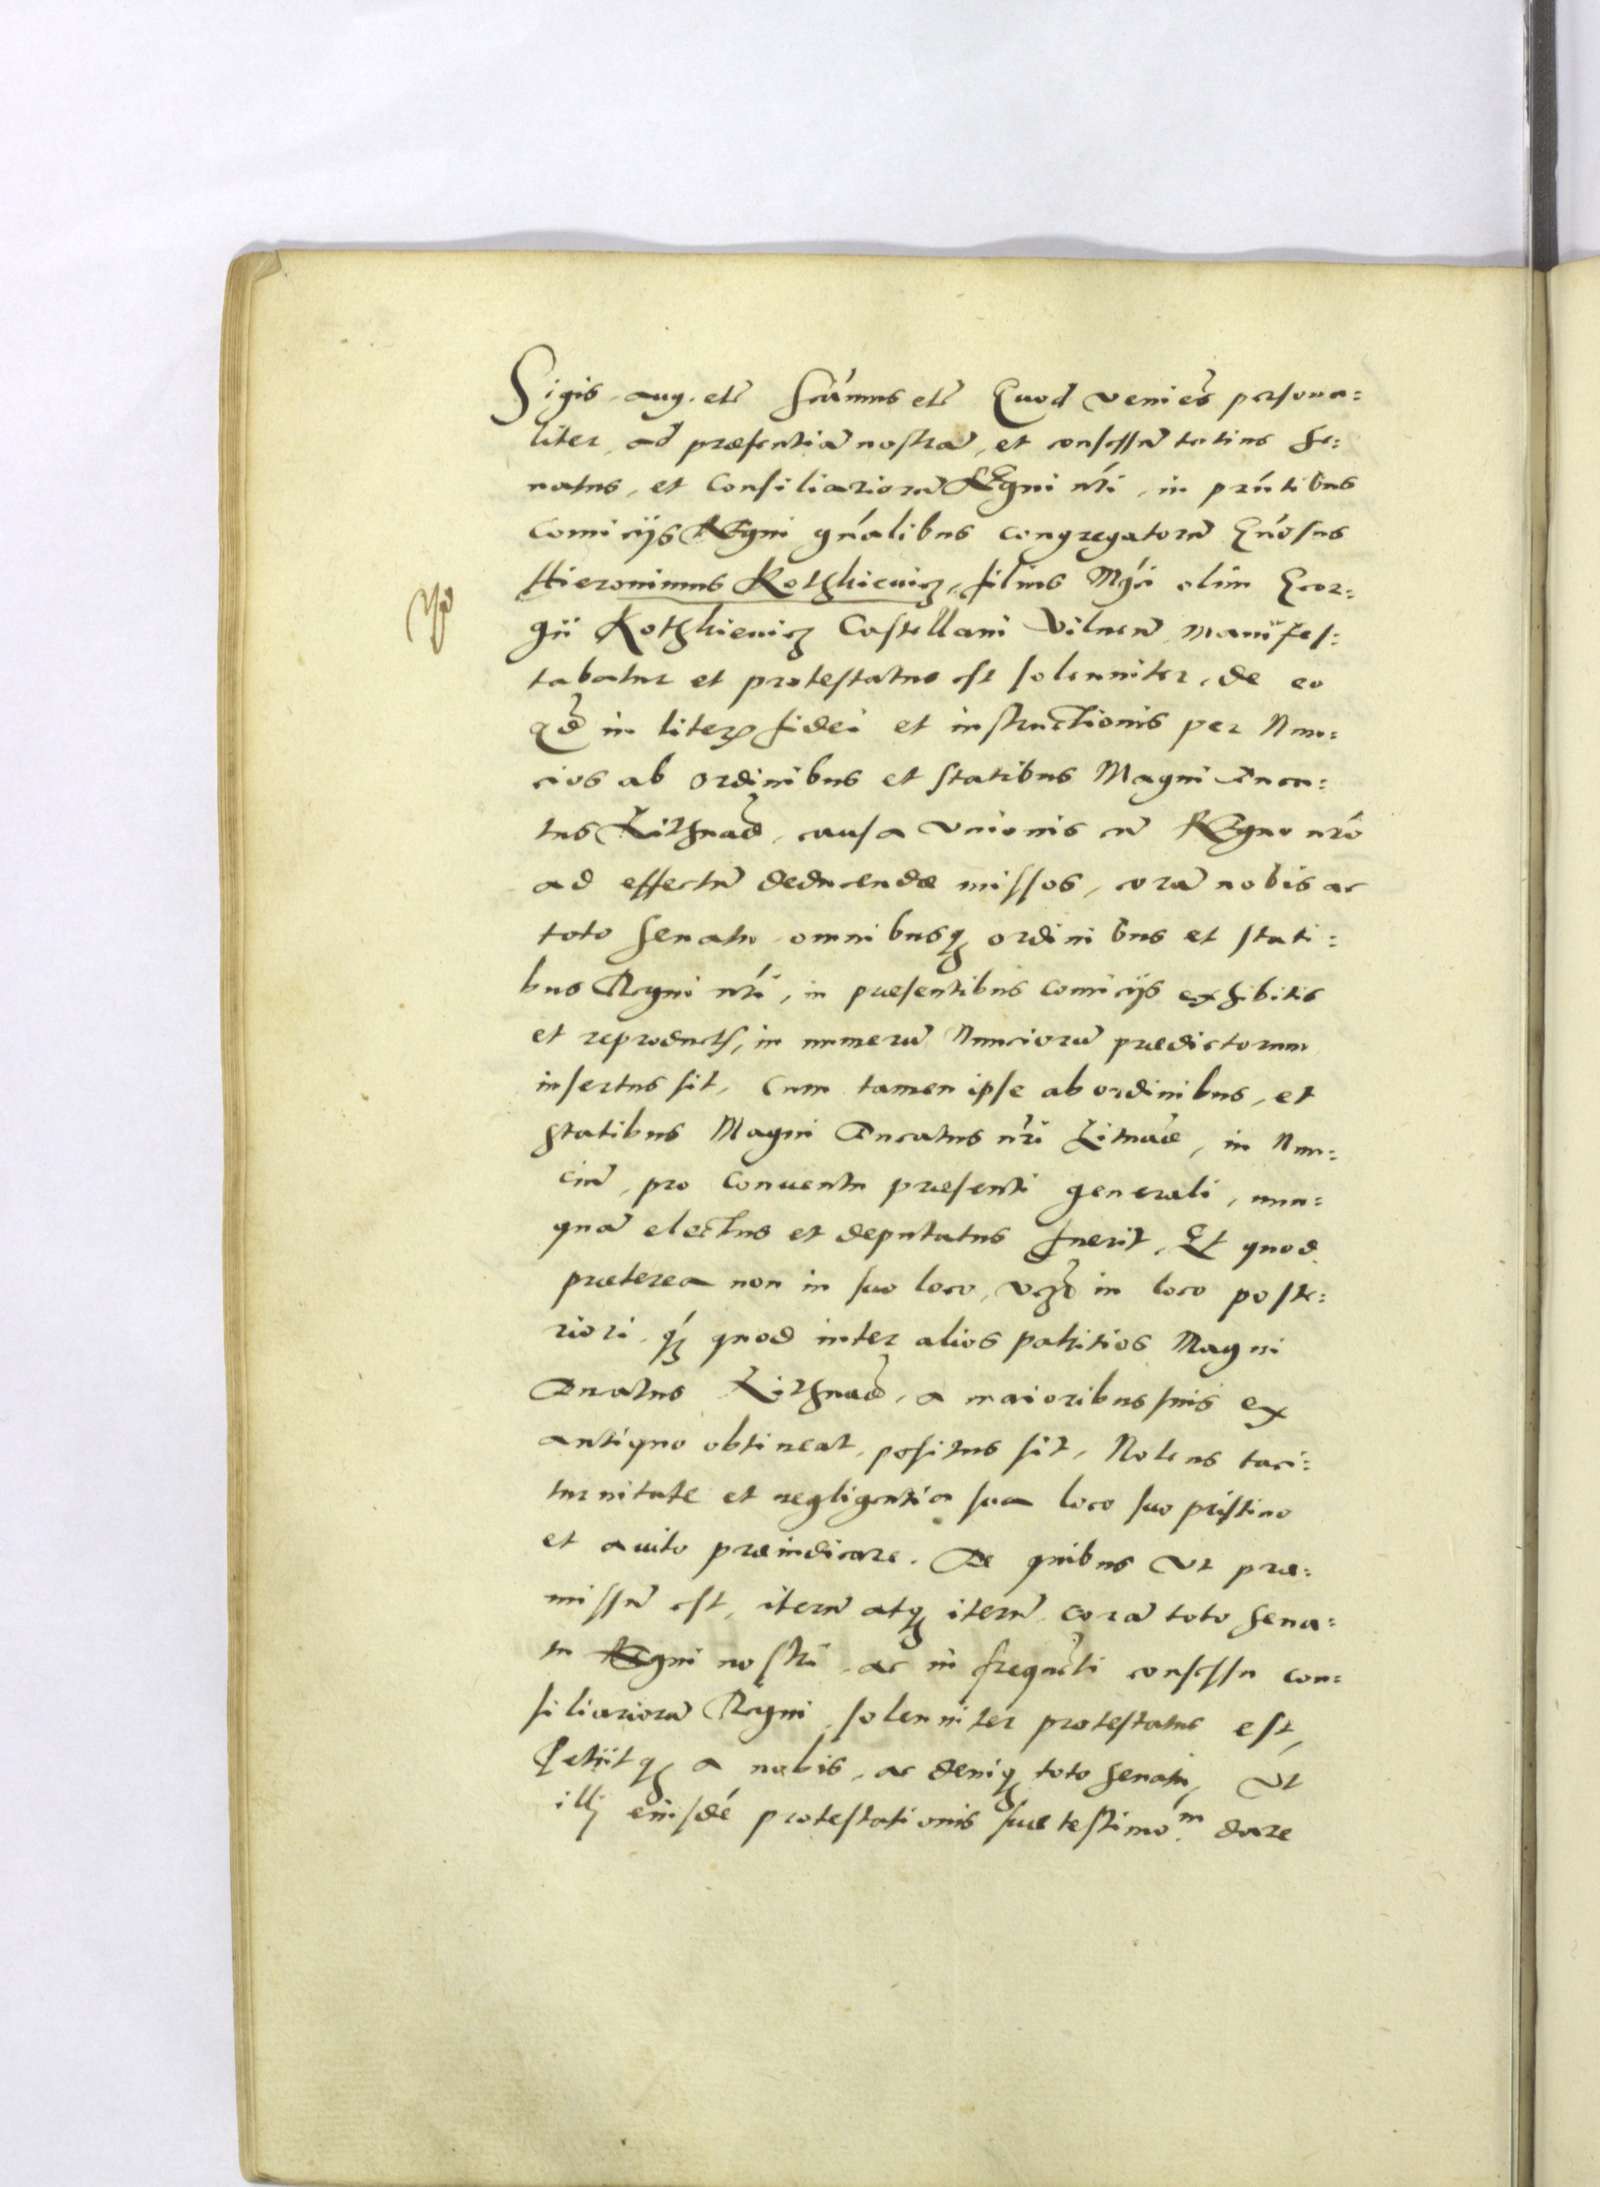 Sigis. aug. etc̃ Scimus etc̃ Quod venieñs persona=
liter, ad præsentiã nostrã, et consessũ totius Se=
natus, et Consiliariorũ Regni nrĩ, in pñtibus
Comicijs Regni gñalibus congregatorũ Gñosus
Hieronimus Kothkiewicz, filius Mgci olim Geor=
gii Kothkiewicz Castellani Vilneñ manifes=
tabatur et protestatus est solenniter, de eo
Qđ in literis fidei et instructionis per Nun=
cios ab ordinibus et statibus Magni Duca=
tus Lithuañ, causa Unionis cũ Regno nrõ
ad effectũ deducendæ missos, corã nobis ac
toto Senatu omnibusq; ordinibus et stati=
bus Regni nrĩ, in præsentibus Comicijs exhibitis
et reproductis, in numerũ Nunciorũ prædictorum
insertus sit, Cum tamen ipse ab ordinibus, et
Statibus Magni Ducatus nrĩ Lituañ, in Nun=
ciũ, pro Conuentu præsenti generali, nun=
quã electus et deputatus fuerit, Et quod
præterea non in suo loco, vezũ in loco poste=
riori, q̃ quod inter alios patritios Magni
Ducatus Lithuañ, a maioribus suis ex
antiquo obtineat, positus sit, Nolens taci=
turnitate et negligentia sua loco suo pristino
et auito præiudicare. De quibus Ut præ=
missũ est, iterũ atq; iterũ, corã toto Sena=
tu Regni nostri, ac in frequẽti consessu con=
siliariorũ Regni, solenniter protestatus est,
Petiitq; a nobis, ac deniq; toto Senatu, Ut
illi eiusdẽ protestationis suæ testimoᵐ. dare